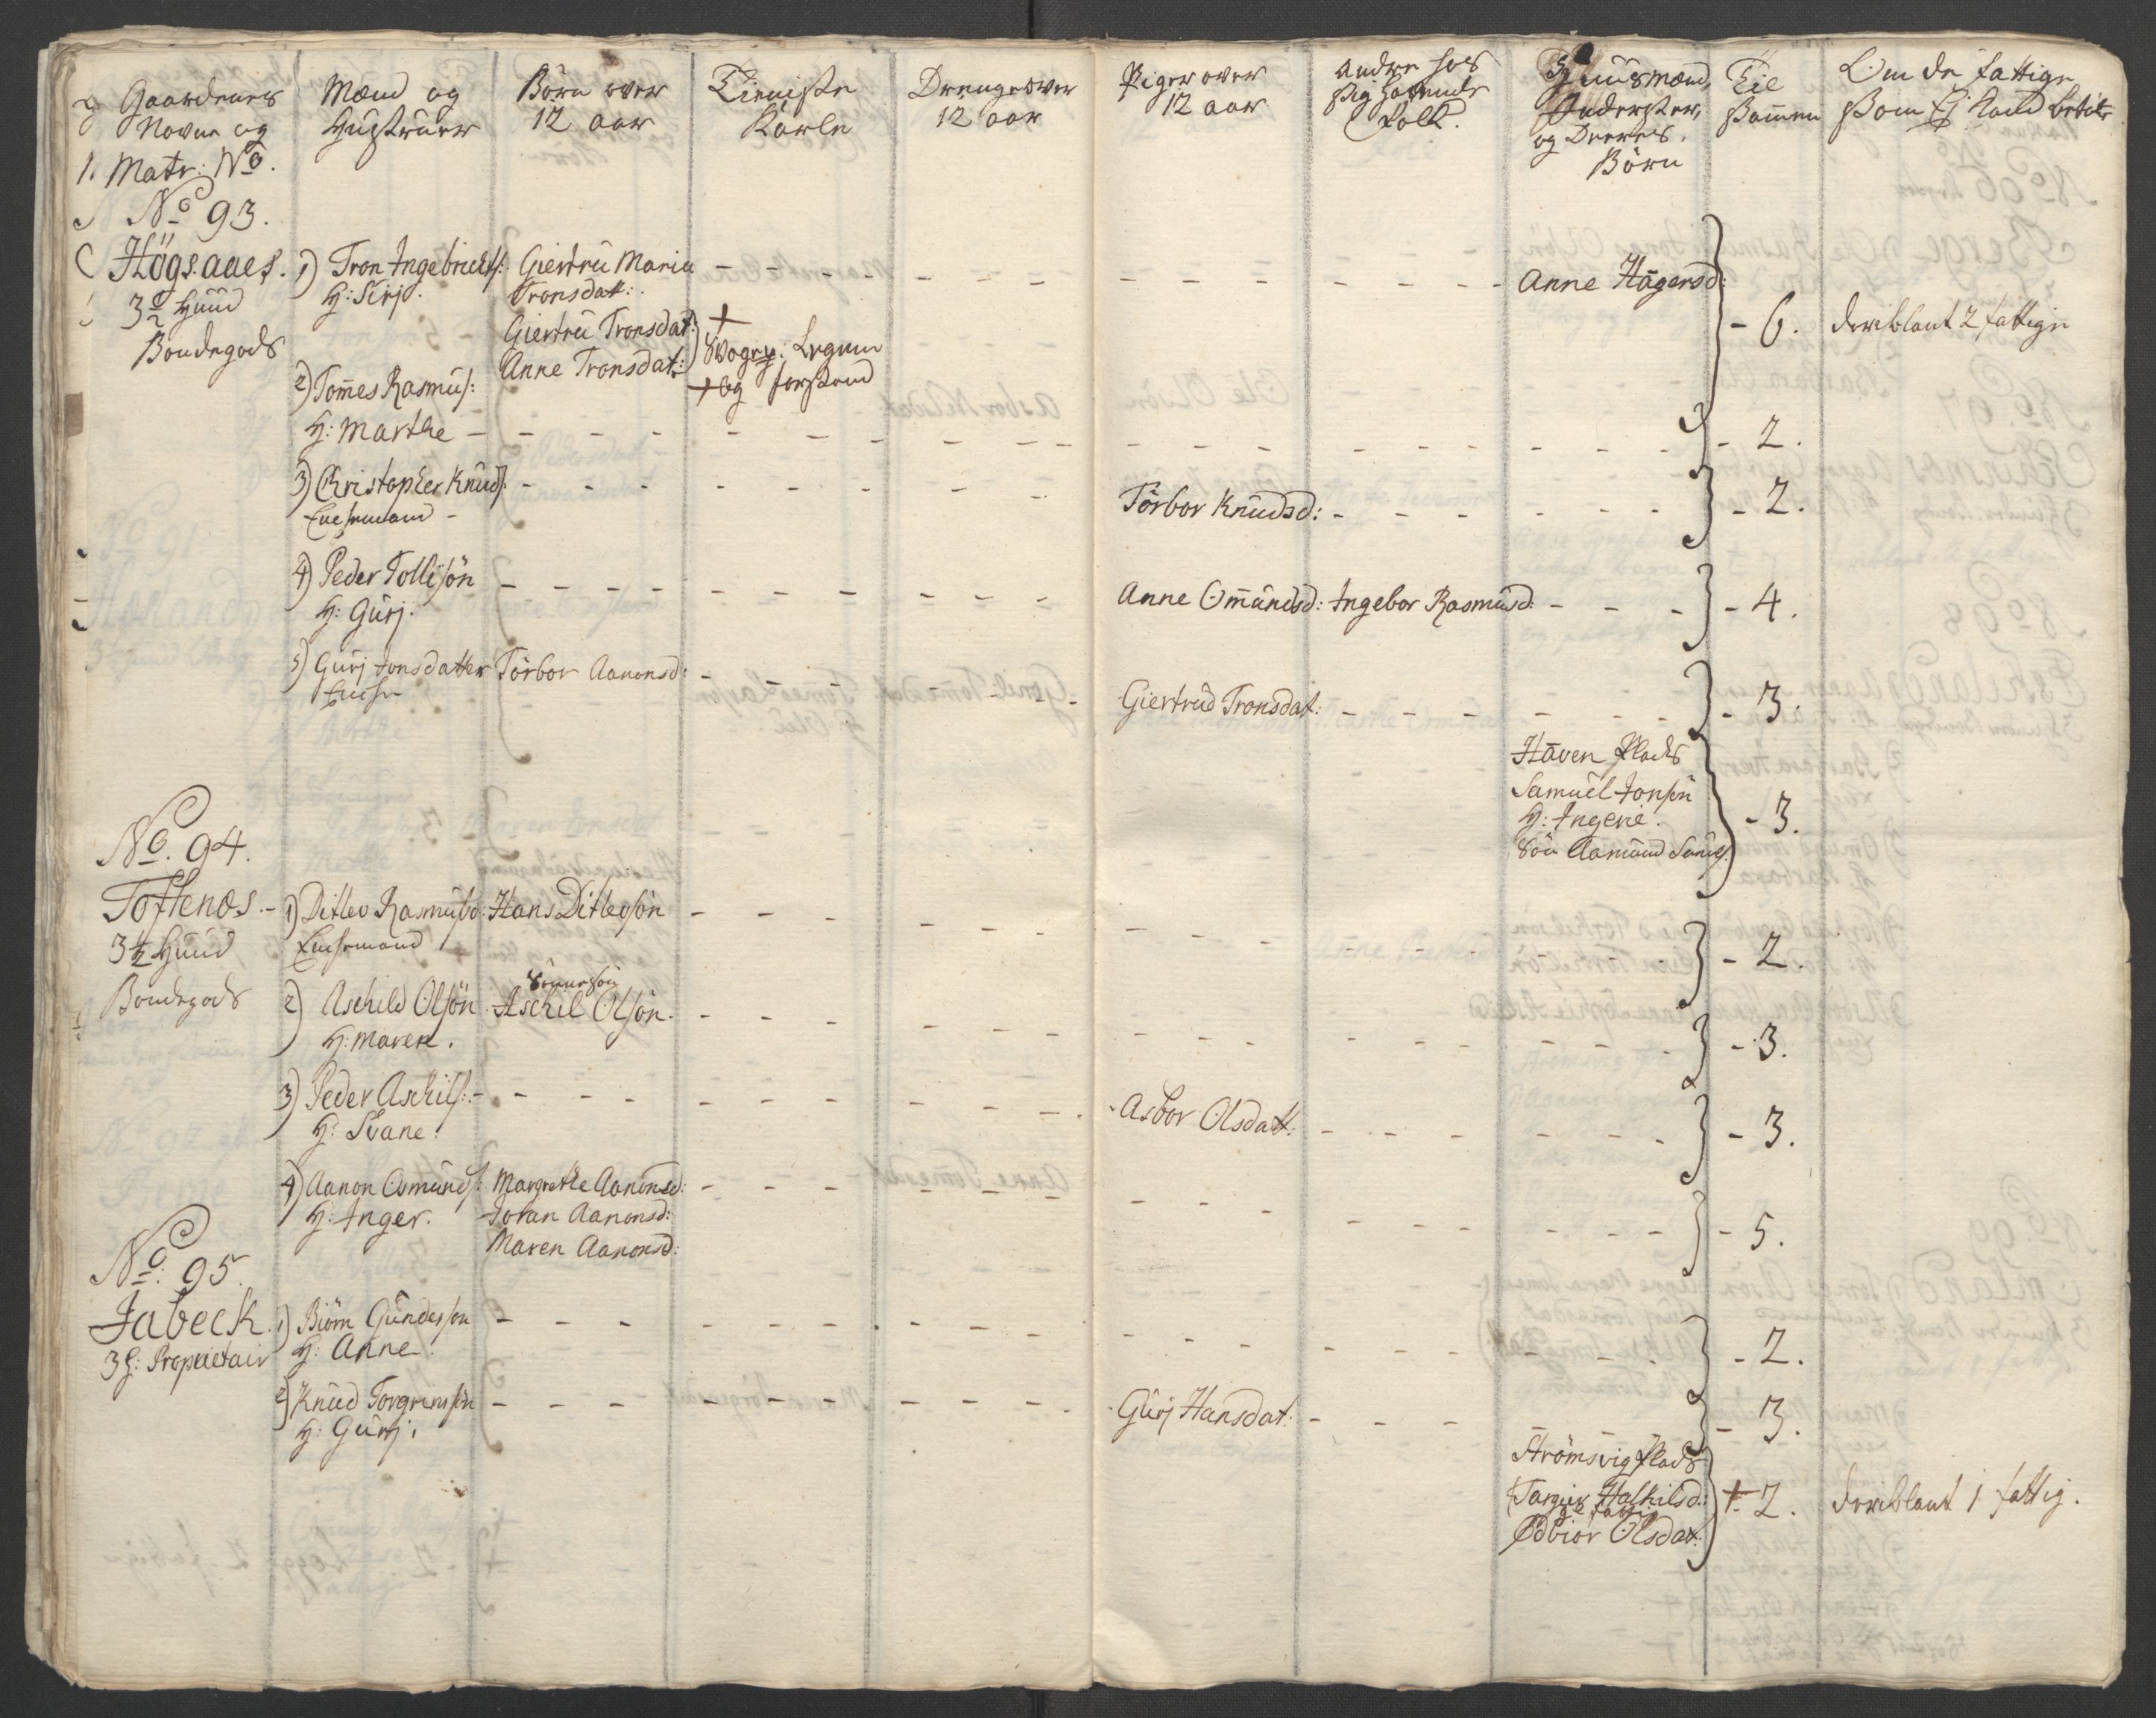 Gaardenes
Navne og
Matr: No.
Mænd og
Hustruer
Börn over
12 aar
Tieniste
Karle
Drenge over
12 aar
Piger over
12 aar
Andre hos
sig havende
Folk.
Huusmænd,
Inderster,
og Deeres
Börn
Til
sammen
Om de fattige
som Ej kand betale
No 93.
Högsaaes.
3 Huud
Bondegods
1) Tron Ingebrichts:
H: Sirj.
Giertru Maria
Tronsdat:
Giertru Tronsdat:
Anne Tronsdat:
+
Svage p: Legeme
+ og forstand
- - - - - - - - -
Anne Hägersd:
- 6.
deriblant 2 fattige
2) Tomes Rasmus:
H: Marthe - - - - - - - - -
- 2.
3) Christopher Knuds:
Enchemand -
Törbor Knudsd: - - - - - -
- 2.
4) Peder Tollisön
H: Gurj.
Anne Omundsd: Ingebor Rasmusd: - - -
- 4.
5) Gurj Jonsdatter
Enche
Törbor Aanonsd:
Giertrud Tronsdat: - - - - -
- 3.
Haven Plads
Samuel Jonsön
H: Ingerie.
Sön Aamund Samuels:
- 3.
No. 94.
Toftenæs. -
3 1/2 Huud
Bondegods
1) Ditlev Rasmuss:
Enchemand
Hans Ditlevsön - - -
- 2.
2) Aschild Olsön
H: Maren.
Sönnesön
Aschil Olsön. - - -
- 3.
3) Peder Aschils: -
H: Svane.
- Asbor Olsdatt: - - - - - -
- 3.
4) Aanon Osmunds:
H: Inger.
Margrethe Aanonsd:
Johan Aanonsd:
Maren Aanonsd:
- 5.
No. 95.
Jabeck.
3 h: Proprietair
1) Biörn Gundersön
H: Anne.
- 2.
2) Knud Torgrimsön
H: Gurj.
Gurj Hansdat: - - -
- 3.
Strömsvig Plads
Targier Halkilsd:
er fattig
Ødbiör Olsdat:
+ 2.
deriblant 1 fattig.